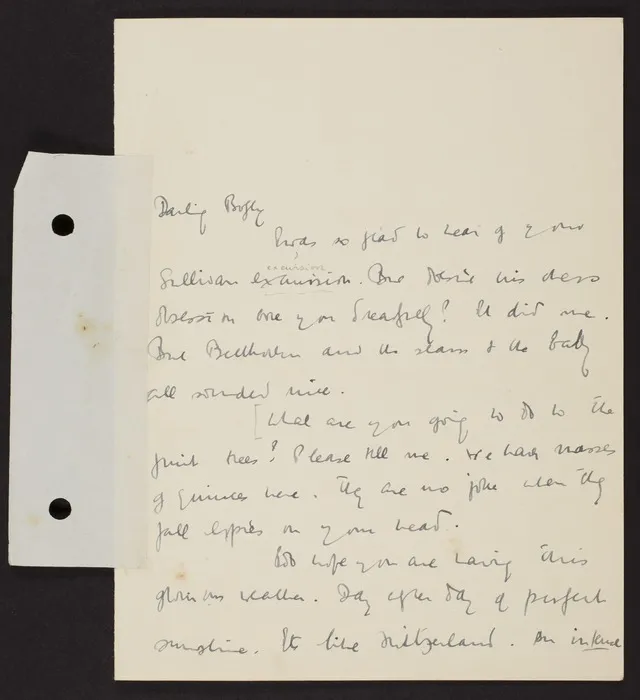 Darling Bogey
I was so glad to hear of your
excursion
Sullivan excursion. But doesnt his chess
obsession bore you dreadfully? It did me.
But Beethoven and the stars & the baby
all sounded nice.
[What are you going to do to the
fruit trees? Please tell me. We have masses
of quinces here. They are no joke when they
fall exprès on your head.
I do hope you are having this
glorious weather. Day after day of perfect
sunshine. Its like Switzerland. An intense